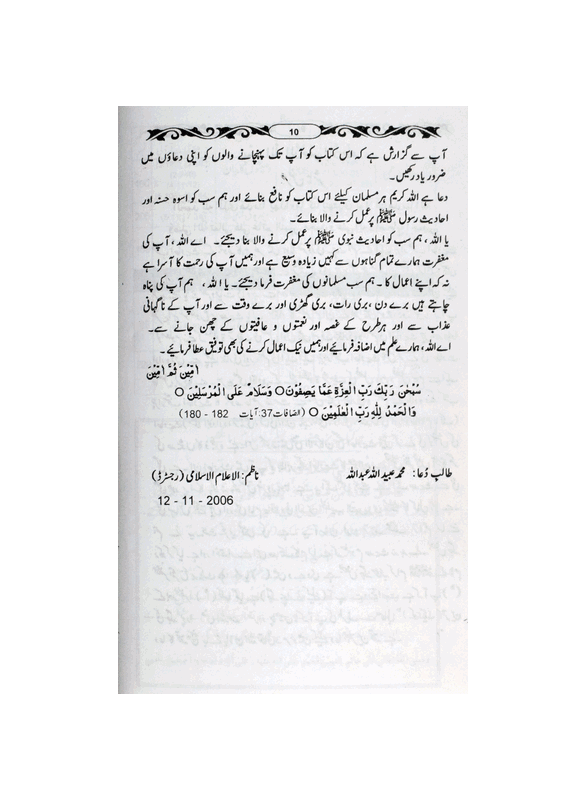 10
آپ سے گزارش ہے کہ اس کتاب کو آپ تک پہنچانے والوں کو اپنی دعاؤں میں
ضرور یاد رکھیں۔
دعا ہے اللہ کریم ہر مسلمان کیلئے اس کتاب کو نافع بنائے اور ہم سب کو اسوہ حسنہ اور
احادیث رسول ﷺ پر عمل کرنے والا بنائے۔
یا اللہ ، ہم سب کو احادیث نبوی ﷺ پر عمل کرنے والا بنا دیجئے۔ اے اللہ ، آپ کی
مغفرت ہمارے تمام گناہوں سے کہیں زیادہ وسیع ہے اور ہمیں آپ کی رحمت کا آسرا ہے
نہ کہ اپنے اعمال کا ۔ ہم سب مسلمانوں کی مغفرت فرما دیجئے۔ یا اللہ ، ہم آپ کی پناہ
چاہتے ہیں برے دن ، بری رات، بری گھڑی اور برے وقت سے اور آپ کے ناگہانی
عذاب سے اور ہر طرح کے غصہ اور نعمتوں و عافیتوں کے چھن جانے سے۔
اے اللہ ، ہمارے علم میں اضافہ فرمائیے اور ہمیں نیک اعمال کرنے کی بھی توفیق عطا فرمائیے ۔
اٰمِیْنَ ثُمَّ اٰمِیْنَ
سُبْحٰنَ رَبِّكَ رَبِّ الْعِزَّةِ عَمَّا يَصِفُوْنَ ○ وَسَلَامٌ عَلَى الْمُرْسَلِيْنَ ○
وَالْحَمْدُ لِلّٰهِ رَبِّ الْعٰلَمِيْنَ ○ (الصافات:37 آیات 182 - 180)
طالب دُعا : محمد عبید اللہ عبد اللہ ناظم : الاعلام الاسلامی (رجسٹرڈ)
12 - 11 - 2006